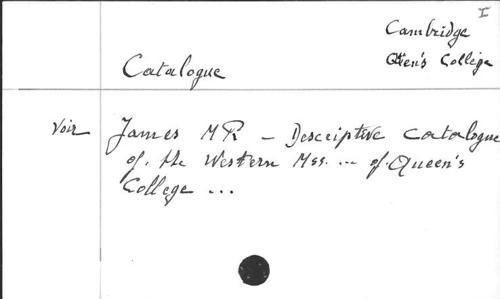 I
Cambridge
Queen's College
Catalogue
Voir James MR – Descriptive catalogue
of. the Western Mss. ... of. Queen's
College ...